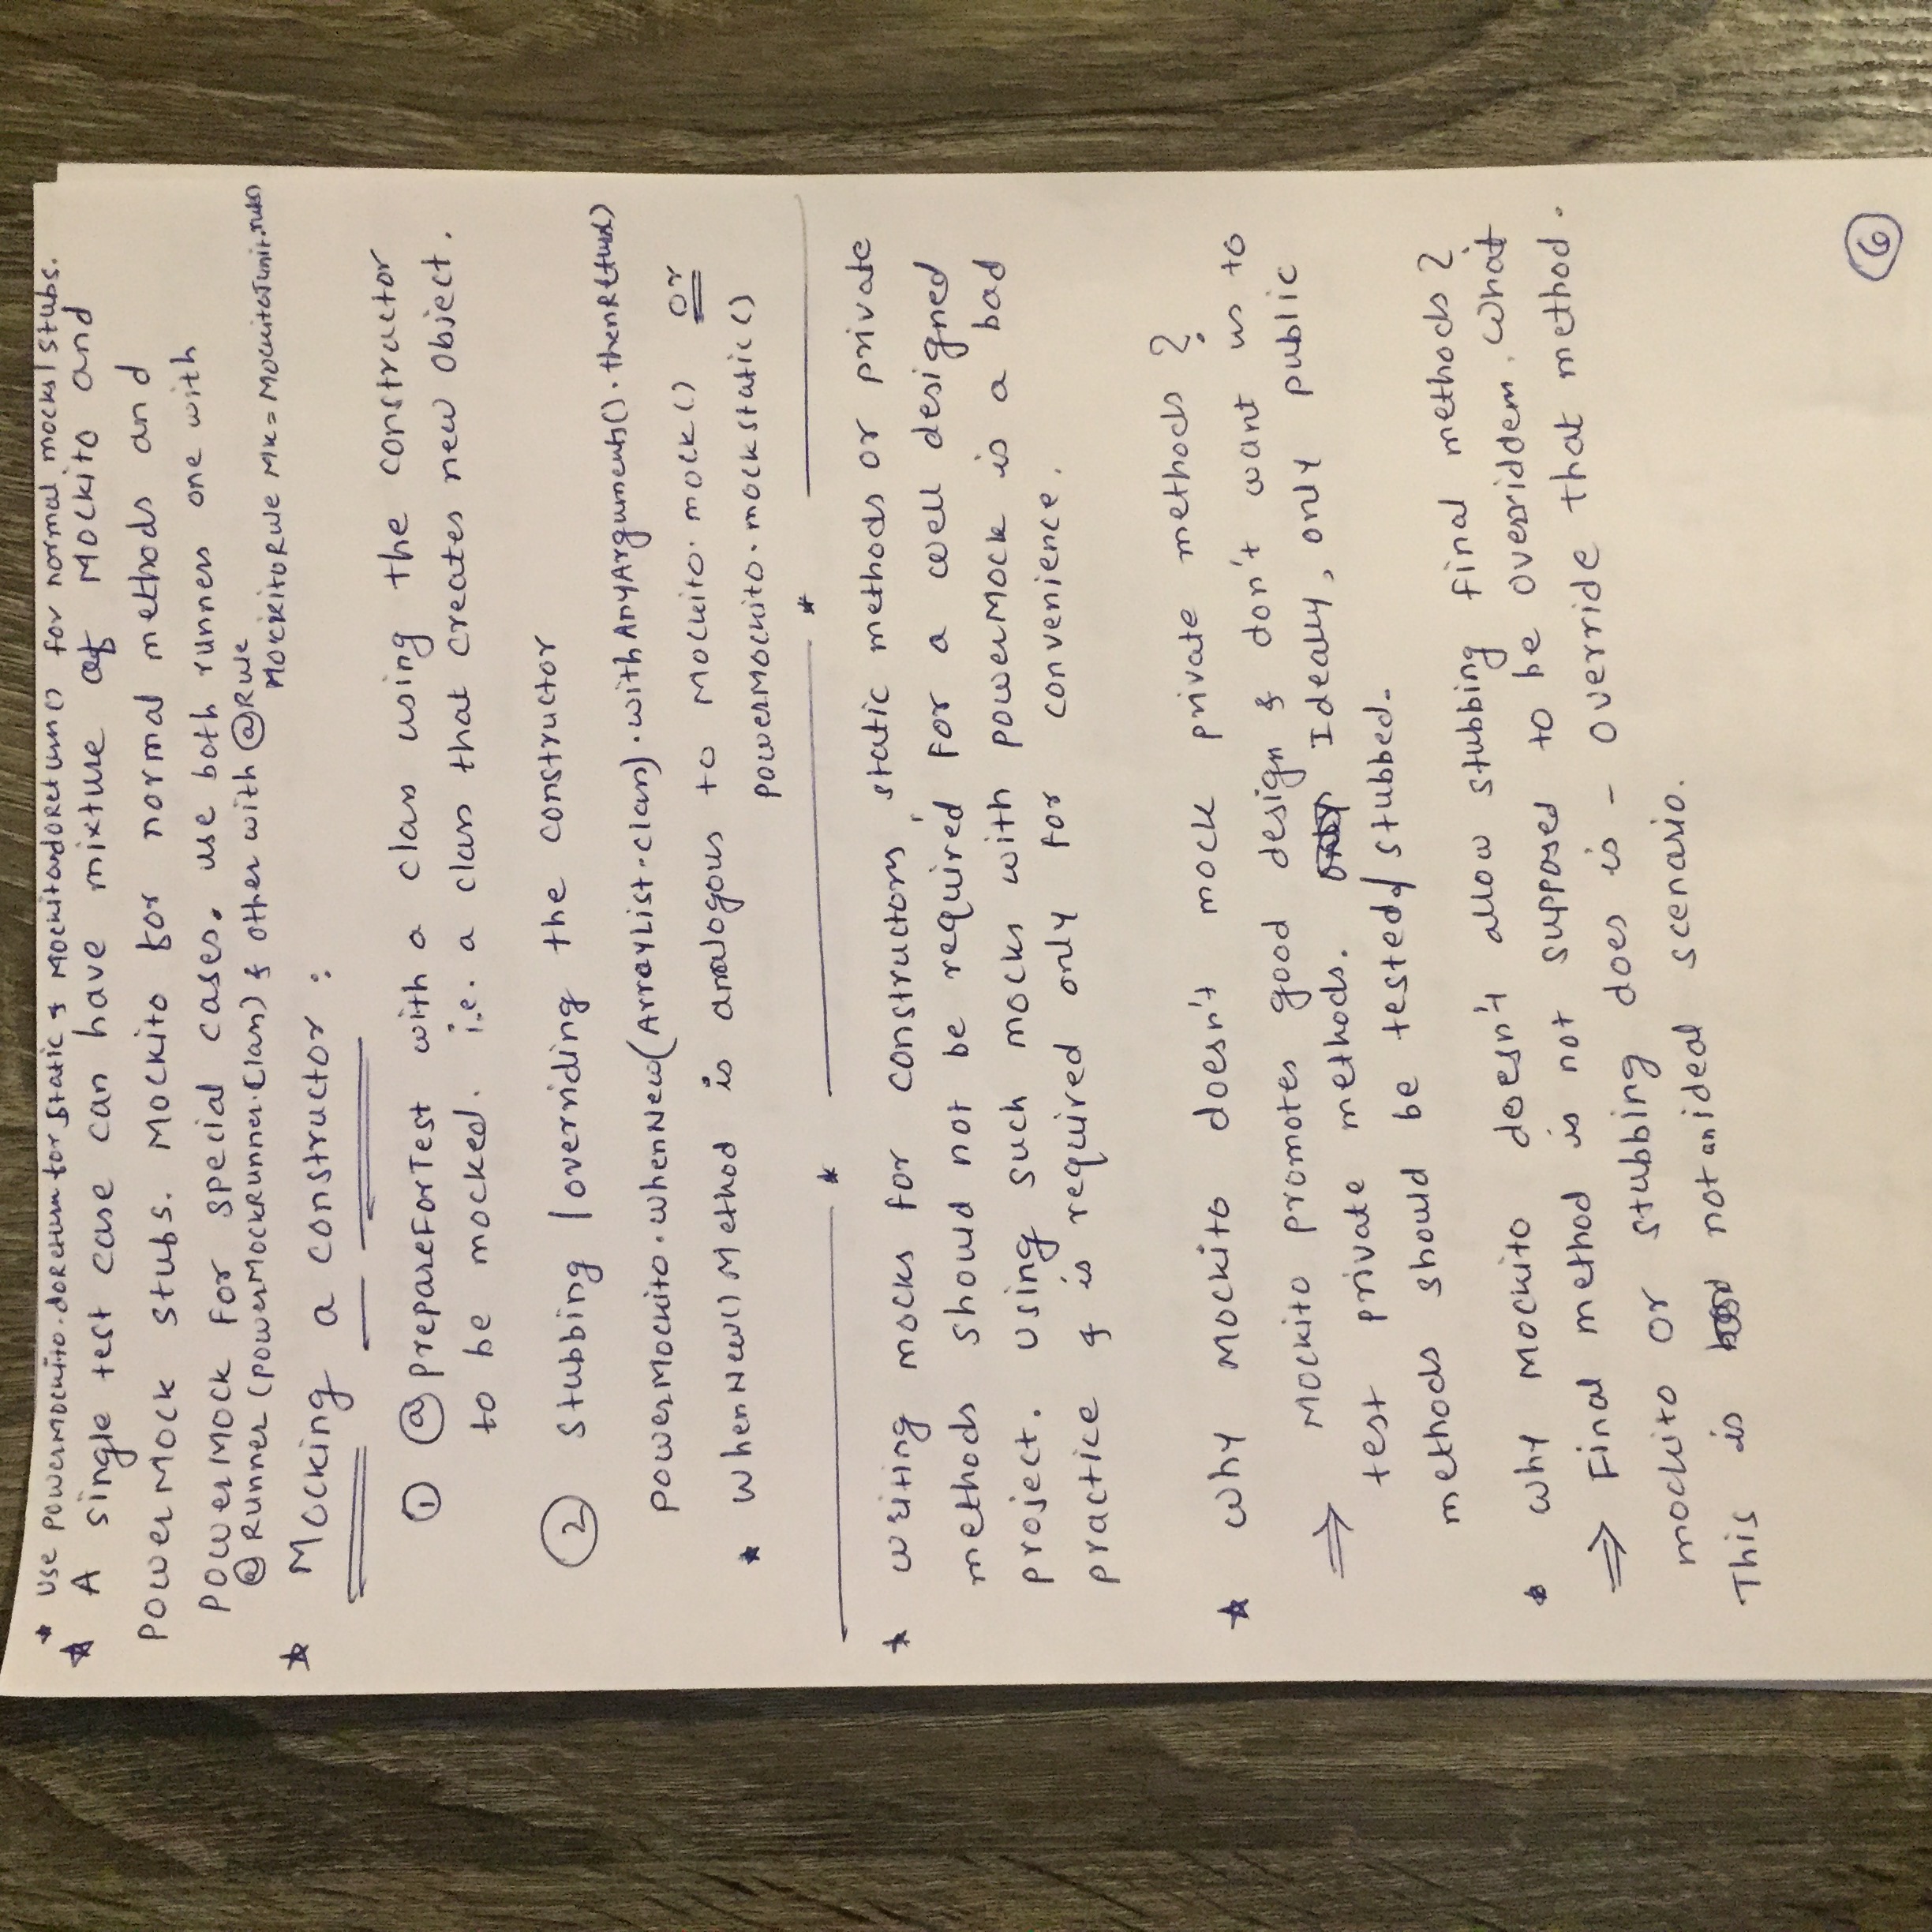 * Use PowerMockito.doReturn for static & Mockito.doReturn() for normal mocks/stubs.
* A single test case can have mixture of Mockito and
PowerMock stubs. Mockito for normal methods and
PowerMock for special cases. use both runners one with
@Runner (PowerMockRunner.class) & other with @Rule
MockitoRule MK = MockitoJunit.rule()
* Mocking a constructor :
① @PrepareForTest with a class using the constructor
to be mocked. i.e. a class that creates new object.
② Stubbing / overriding the constructor
PowerMockito.whenNew(ArrayList.class).withAnyArguments().thenReturn()
* WhenNew() Method is analogous to Mockito.mock() or
PowerMockito.mockstatic()
* *
* Writing mocks for constructors, static methods or private
methods should not be required for a well designed
project. Using such mocks with PowerMock is a bad
practice & is required only for convenience.
* Why Mockito doesn't mock private methods ?
⇒ Mockito promotes good design & don't want us to
test private methods. Ideally, only public
methods should be tested/stubbed.
* Why Mockito doesn't allow stubbing final methods ?
⇒ Final method is not supposed to be overridden. What
mockito or stubbing does is - override that method.
This is not an ideal scenario.
6